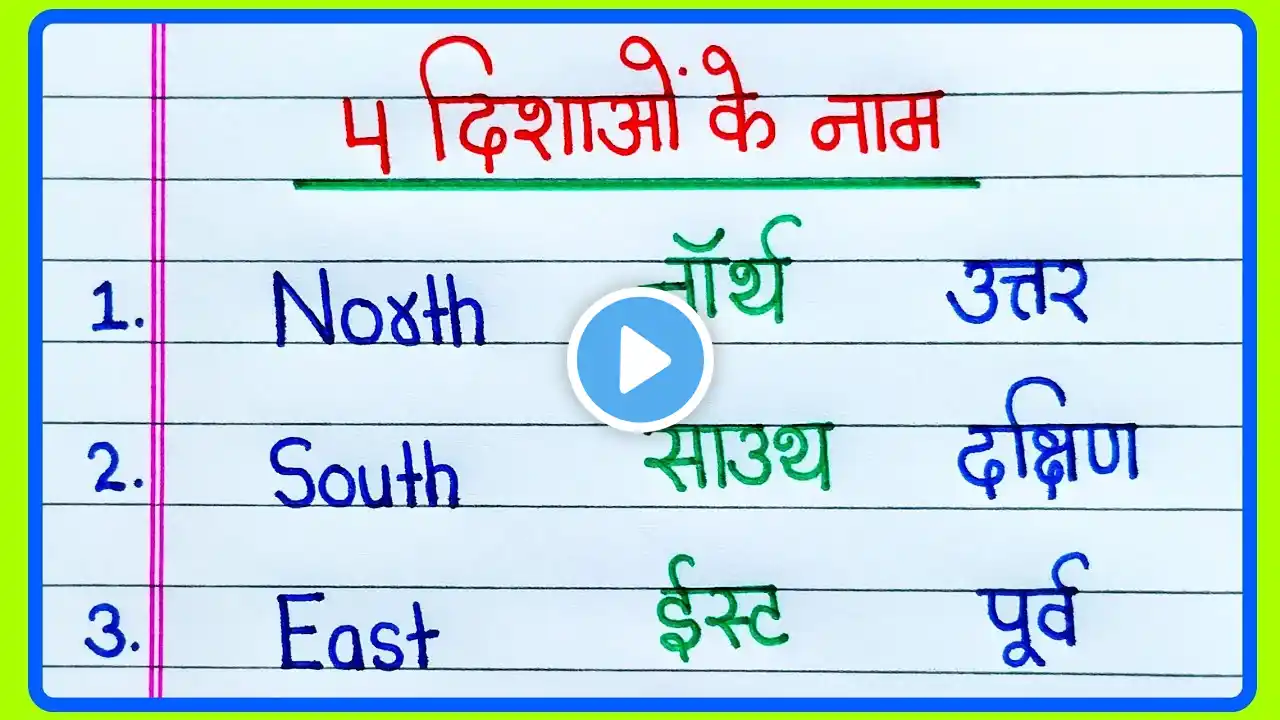 4 दिशाओं के नाम
1. North नॉर्थ उत्तर
2. South साउथ दक्षिण
3. East ईस्ट पूर्व